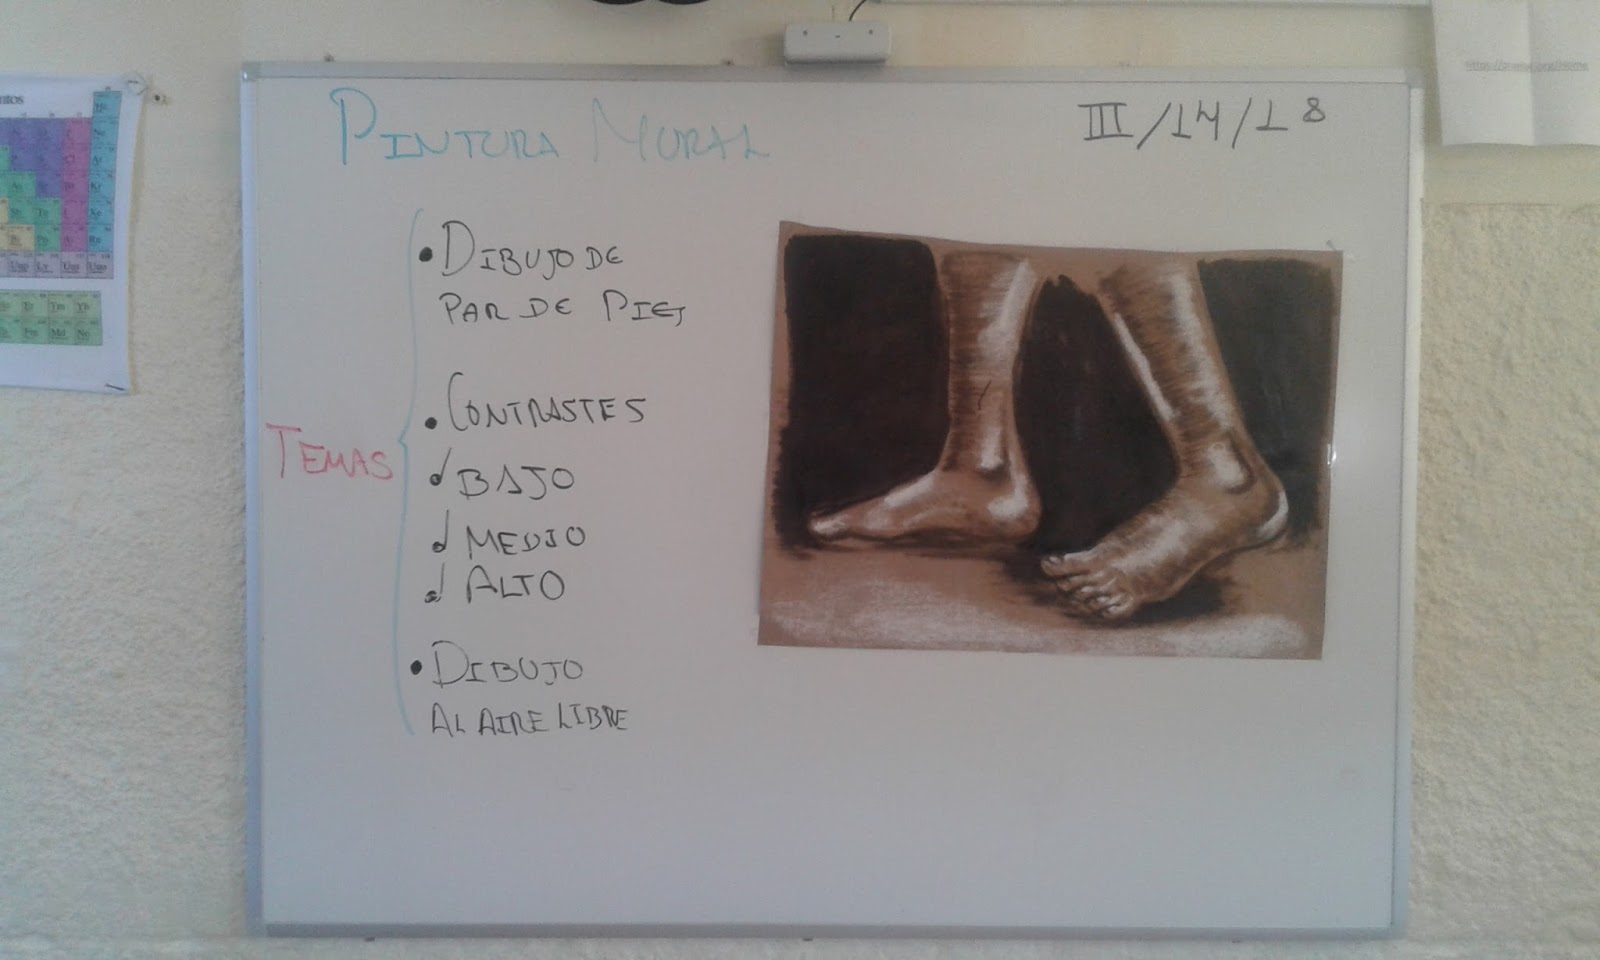 PINTURA MURAL
III/14/18
TEMAS
• DIBUJO DE
PAR DE PIES
• CONTRASTES
BAJO
MEDIO
ALTO
• DIBUJO
AL AIRE LIBRE